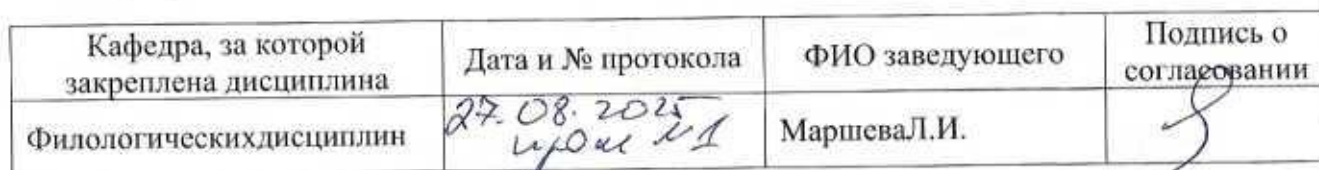 Кафедра, за которой
закреплена дисциплина
Дата и № протокола
ФИО заведующего
Подпись о
согласовании
Филологическихдисциплин
27.08.2025
№1
МаршеваЛ.И.